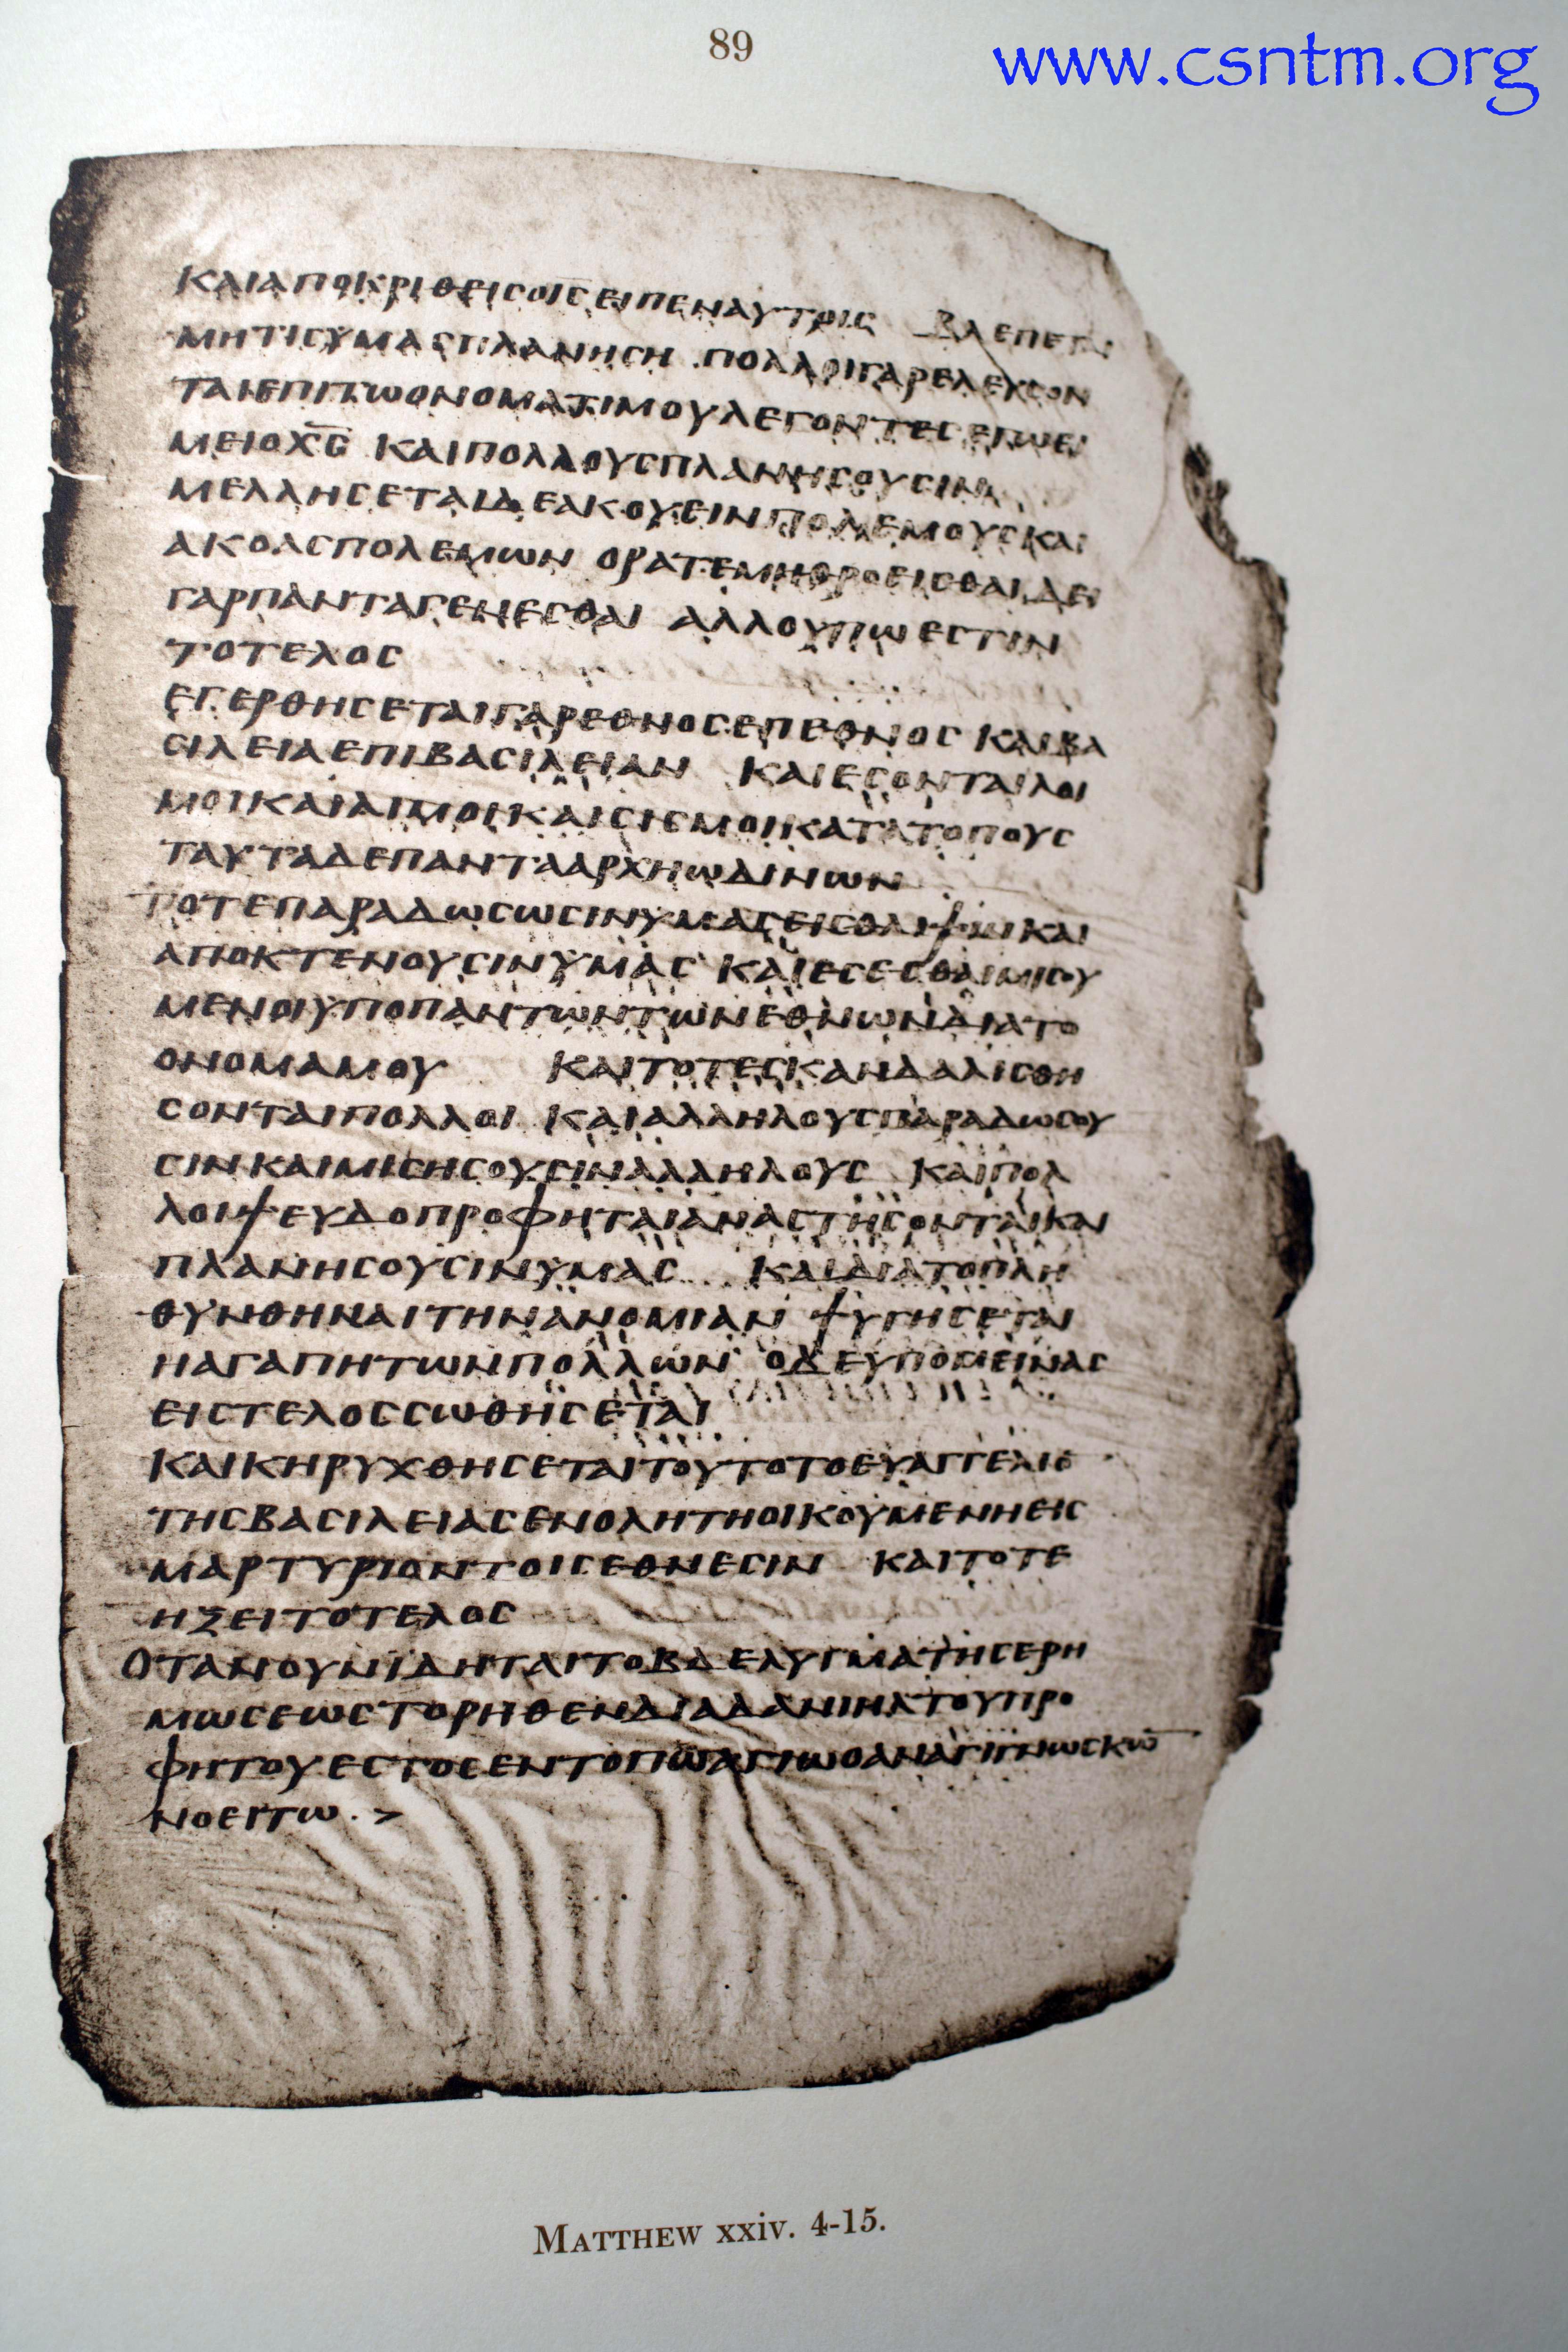 89
www.csntm.org
ΚΑΙΑΠΟΚΡΙΘΕΙCΟΙ̅C̅ΕΙΠΕΝΑΥΤΟΙC ΒΛΕΠΕΤΑΙ
ΜΗΤΙCΥΜΑCΠΛΑΝΗCΗ ΠΟΛΛΟΙΓΑΡΕΛΕΥCΟΝ
ΤΑΙΕΠΙΤΩΟΝΟΜΑΤΙΜΟΥΛΕΓΟΝΤΕCΕΓΩΕΙ
ΜΕΙΟΧ̅C̅ ΚΑΙΠΟΛΛΟΥCΠΛΑΝΗCΟΥCΙΝ
ΜΕΛΛΗCΕΤΑΙΔΕΑΚΟΥΕΙΝΠΟΛΕΜΟΥCΚΑΙ
ΑΚΟΑCΠΟΛΕΜΩΝ ΟΡΑΤΕΜΗΘΡΟΕΙCΘΑΙΔΕΙ
ΓΑΡΠΑΝΤΑΓΕΝΕCΘΑΙ ΑΛΛΟΥΠΩΕCΤΙΝ
ΤΟΤΕΛΟC
ΕΓΕΡΘΗCΕΤΑΙΓΑΡΕΘΝΟCΕΠΕΘΝΟC ΚΑΙΒΑ
CΙΛΕΙΑΕΠΙΒΑCΙΛΕΙΑΝ ΚΑΙΕCΟΝΤΑΙΛΟΙ
ΜΟΙΚΑΙΛΙΜΟΙΚΑΙCΙCΜΟΙΚΑΤΑΤΟΠΟΥC
ΤΑΥΤΑΔΕΠΑΝΤΑΑΡΧΗΩΔΙΝΩΝ
ΤΟΤΕΠΑΡΑΔΩCΩCΙΝΥΜΑCΕΙCΘΛΙΨΙΝΚΑΙ
ΑΠΟΚΤΕΝΟΥCΙΝΥΜΑC ΚΑΙΕCΕCΘΑΙΜΙCΟΥ
ΜΕΝΟΙΥΠΟΠΑΝΤΩΝΤΩΝΕΘΝΩΝΔΙΑΤΟ
ΟΝΟΜΑΜΟΥ ΚΑΙΤΟΤΕCΚΑΝΔΑΛΙCΘΗ
CΟΝΤΑΙΠΟΛΛΟΙ ΚΑΙΑΛΛΗΛΟΥCΠΑΡΑΔΩCΟΥ
CΙΝΚΑΙΜΙCΗCΟΥCΙΝΑΛΛΗΛΟΥC ΚΑΙΠΟΛ
ΛΟΙΨΕΥΔΟΠΡΟΦΗΤΑΙΑΝΑCΤΗCΟΝΤΑΙΚΑΙ
ΠΛΑΝΗCΟΥCΙΝΥΜΑC ΚΑΙΔΙΑΤΟΠΛΗ
ΘΥΝΘΗΝΑΙΤΗΝΑΝΟΜΙΑΝ ΨΥΓΗCΕΤΑΙ
ΗΑΓΑΠΗΤΩΝΠΟΛΛΩΝ ΟΔΕΥΠΟΜΕΙΝΑC
ΕΙCΤΕΛΟCCΩΘΗCΕΤΑΙ
ΚΑΙΚΗΡΥΧΘΗCΕΤΑΙΤΟΥΤΟΤΟΕΥΑΓΓΕΛΙΟ
ΤΗCΒΑCΙΛΕΙΑCΕΝΟΛΗΤΗΟΙΚΟΥΜΕΝΗΕΙC
ΜΑΡΤΥΡΙΟΝΤΟΙCΕΘΝΕCΙΝ ΚΑΙΤΟΤΕ
ΗΞΕΙΤΟΤΕΛΟC
ΟΤΑΝΟΥΝΙΔΗΤΑΙΤΟΒΔΕΛΥΓΜΑΤΗCΕΡΗ
ΜΩCΕΩCΤΟΡΗΘΕΝΔΙΑΔΑΝΙΗΛΤΟΥΠΡΟ
ΦΗΤΟΥΕCΤΟCΕΝΤΟΠΩΑΓΙΩΟΑΝΑΓΙΓΝΩCΚΩ̅
ΝΟΕΙΤΩ. >
MATTHEW xxiv. 4-15.